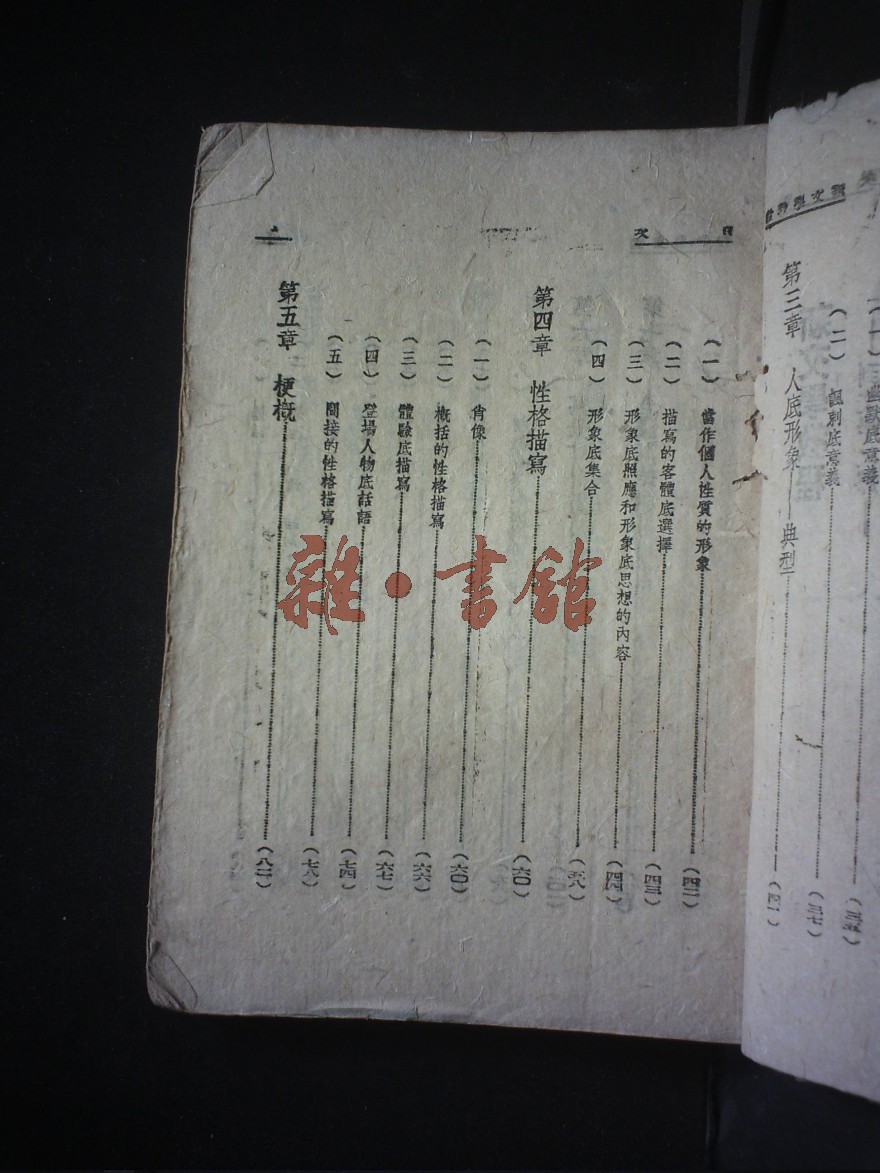 (一) 幽默底意義……(三五)
(二) 諷刺底意義……(三七)
第三章 人底形象——典型……(四一)
目次
(一) 當作個人性質的形象……(四二)
(二) 描寫的客體底選擇……(四三)
(三) 形象底照應和形象底思想的內容……(四四)
(四) 形象底集合……(五八)
第四章 性格描寫……(六〇)
(一) 肖像……(六〇)
(二) 概括的性格描寫……(六六)
(三) 體驗底描寫……(六七)
(四) 登場人物底話語……(七四)
(五) 間接的性格描寫……(七八)
第五章 梗概……(八一)
雜·書館